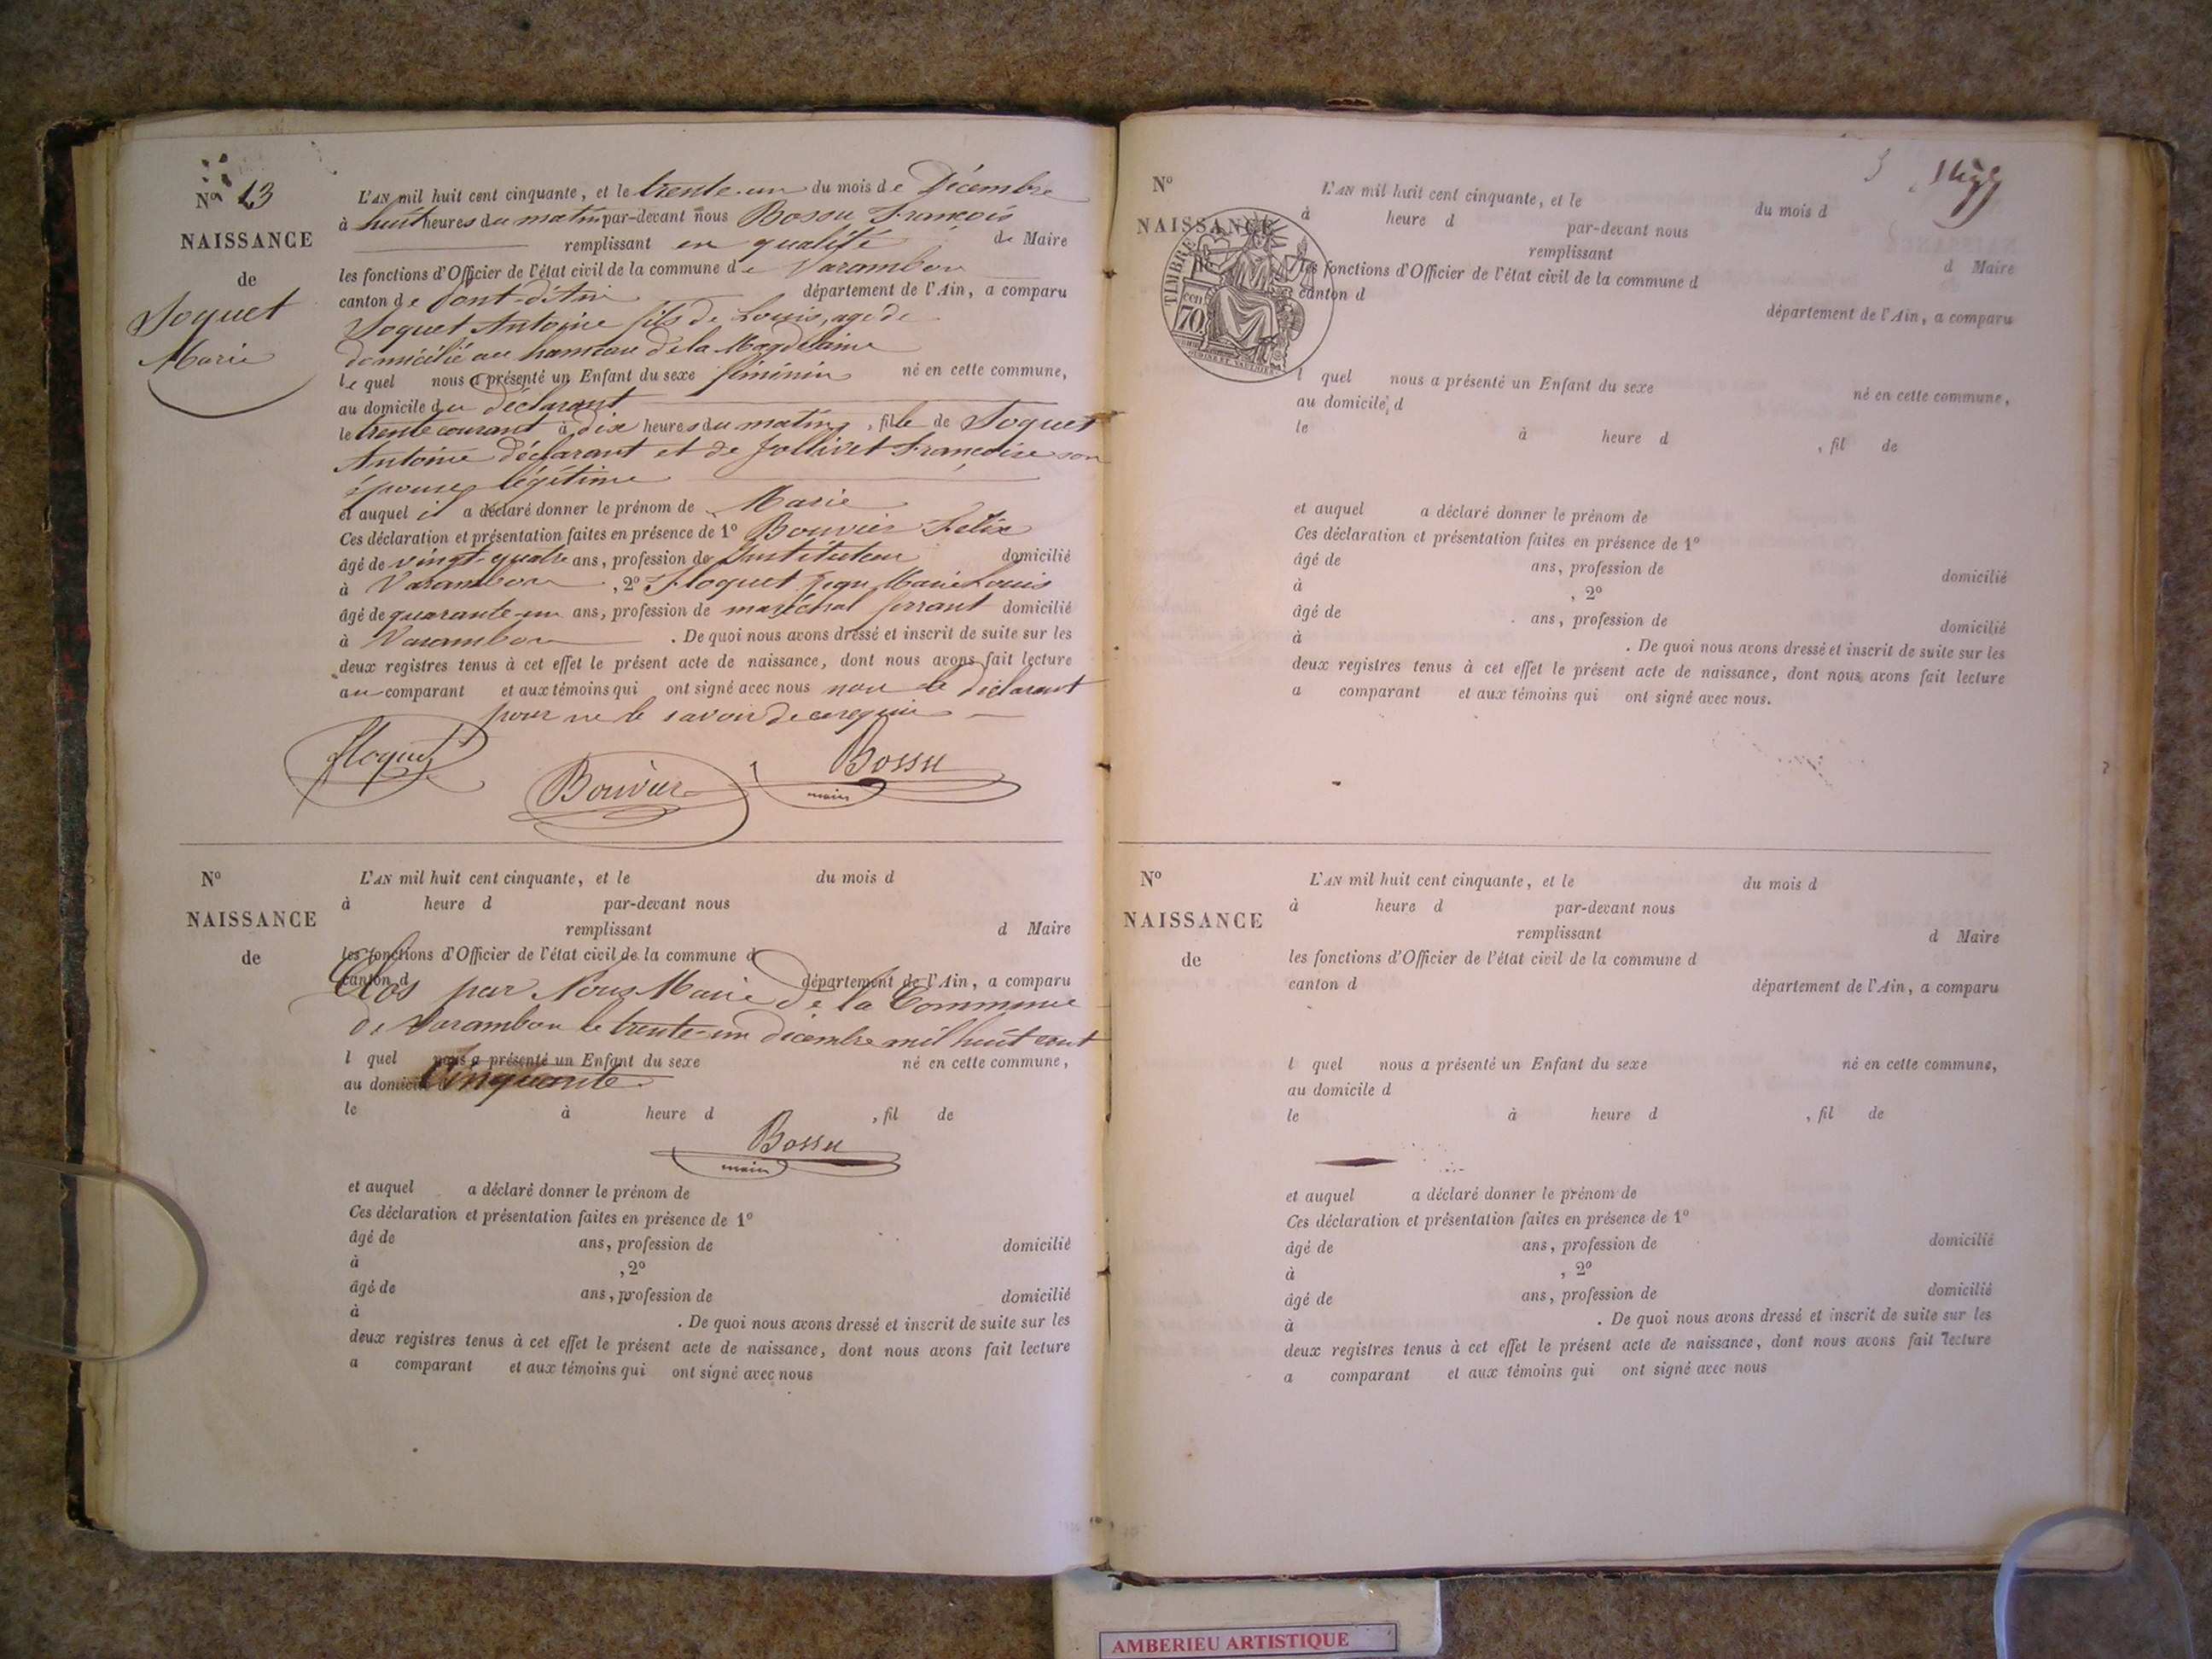 No 13
NAISSANCE
de
Joquet
Marie
L'AN mil huit cent cinquante, et le trente-un du mois de Décembre
à huit heures du matin par-devant nous Bossu François
remplissant en qualité de Maire
les fonctions d'Officier de l'état civil de la commune de Varambon
canton de Pont-d'Ain département de l'Ain, a comparu
Joquet Antoine fils de Louis, age de
domicilié au hameau de la Magdelaine
le quel nous a présenté un Enfant du sexe féminin né en cette commune,
au domicile du déclarant
le trente courant à dix heures du matin, fille de Joquet
Antoine déclarant et de Jollivet Françoise son
épouse légitime
et auquel il a déclaré donner le prénom de Marie
Ces déclaration et présentation faites en présence de 1º Bouvier Felix
âgé de vingt-quatre ans, profession de Instituteur domicilié
à Varambon, 2º Floquet Jean Marie Louis
âgé de quarante-un ans, profession de maréchal ferrant domicilié
à Varambon. De quoi nous avons dressé et inscrit de suite sur les
deux registres tenus à cet effet le présent acte de naissance, dont nous avons fait lecture
au comparant et aux témoins qui ont signé avec nous non le déclarant
pour ne le savoir de ce requis
Floquet
Bouvier
Bossu
maire
No
NAISSANCE
de
L'AN mil huit cent cinquante, et le du mois d
à heure d par-devant nous
remplissant d Maire
les fonctions d'Officier de l'état civil de la commune d
canton d département de l'Ain, a comparu
Clos par Nous Maire de la Commune
de Varambon le trente-un décembre mil huit cent
l quel nous a présenté un Enfant du sexe né en cette commune,
au domicile
cinquante
le à heure d , fil de
Bossu
maire
et auquel a déclaré donner le prénom de
Ces déclaration et présentation faites en présence de 1º
âgé de ans, profession de domicilié
à , 2º
âgé de ans, profession de domicilié
à . De quoi nous avons dressé et inscrit de suite sur les
deux registres tenus à cet effet le présent acte de naissance, dont nous avons fait lecture
a comparant et aux témoins qui ont signé avec nous
No
NAISSANCE
de
TIMBRE
70
cen
L'AN mil huit cent cinquante, et le du mois d
à heure d par-devant nous
remplissant d Maire
les fonctions d'Officier de l'état civil de la commune d
canton d département de l'Ain, a comparu
l quel nous a présenté un Enfant du sexe né en cette commune,
au domicile d
le à heure d , fil de
et auquel a déclaré donner le prénom de
Ces déclaration et présentation faites en présence de 1º
âgé de ans, profession de domicilié
à , 2º
âgé de ans, profession de domicilié
à . De quoi nous avons dressé et inscrit de suite sur les
deux registres tenus à cet effet le présent acte de naissance, dont nous avons fait lecture
a comparant et aux témoins qui ont signé avec nous.
No
NAISSANCE
de
L'AN mil huit cent cinquante, et le du mois d
à heure d par-devant nous
remplissant d Maire
les fonctions d'Officier de l'état civil de la commune d
canton d département de l'Ain, a comparu
l quel nous a présenté un Enfant du sexe né en cette commune,
au domicile d
le à heure d , fil de
et auquel a déclaré donner le prénom de
Ces déclaration et présentation faites en présence de 1º
âgé de ans, profession de domicilié
à , 2º
âgé de ans, profession de domicilié
à . De quoi nous avons dressé et inscrit de suite sur les
deux registres tenus à cet effet le présent acte de naissance, dont nous avons fait lecture
a comparant et aux témoins qui ont signé avec nous
AMBERIEU ARTISTIQUE